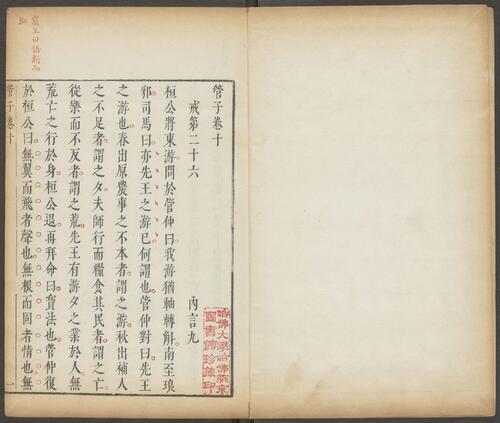 管子卷十
戒第二十六 內言九
桓公將東游問於管仲曰我游猶軸轉斛南至琅
邪司馬曰亦先王之游已何謂也管仲對曰先王
之游也春出原農事之不本者謂之游秋出補人
之不足者謂之夕夫師行而糧食其民者謂之亡
從樂而不反者謂之荒先王有游夕之業於人無
荒亡之行於身桓公退再拜命曰寶法也管仲復
於桓公曰無翼而飛者聲也無根而固者情也無
管子卷十
一
哈佛大學哈佛燕京
圖書館珍藏印